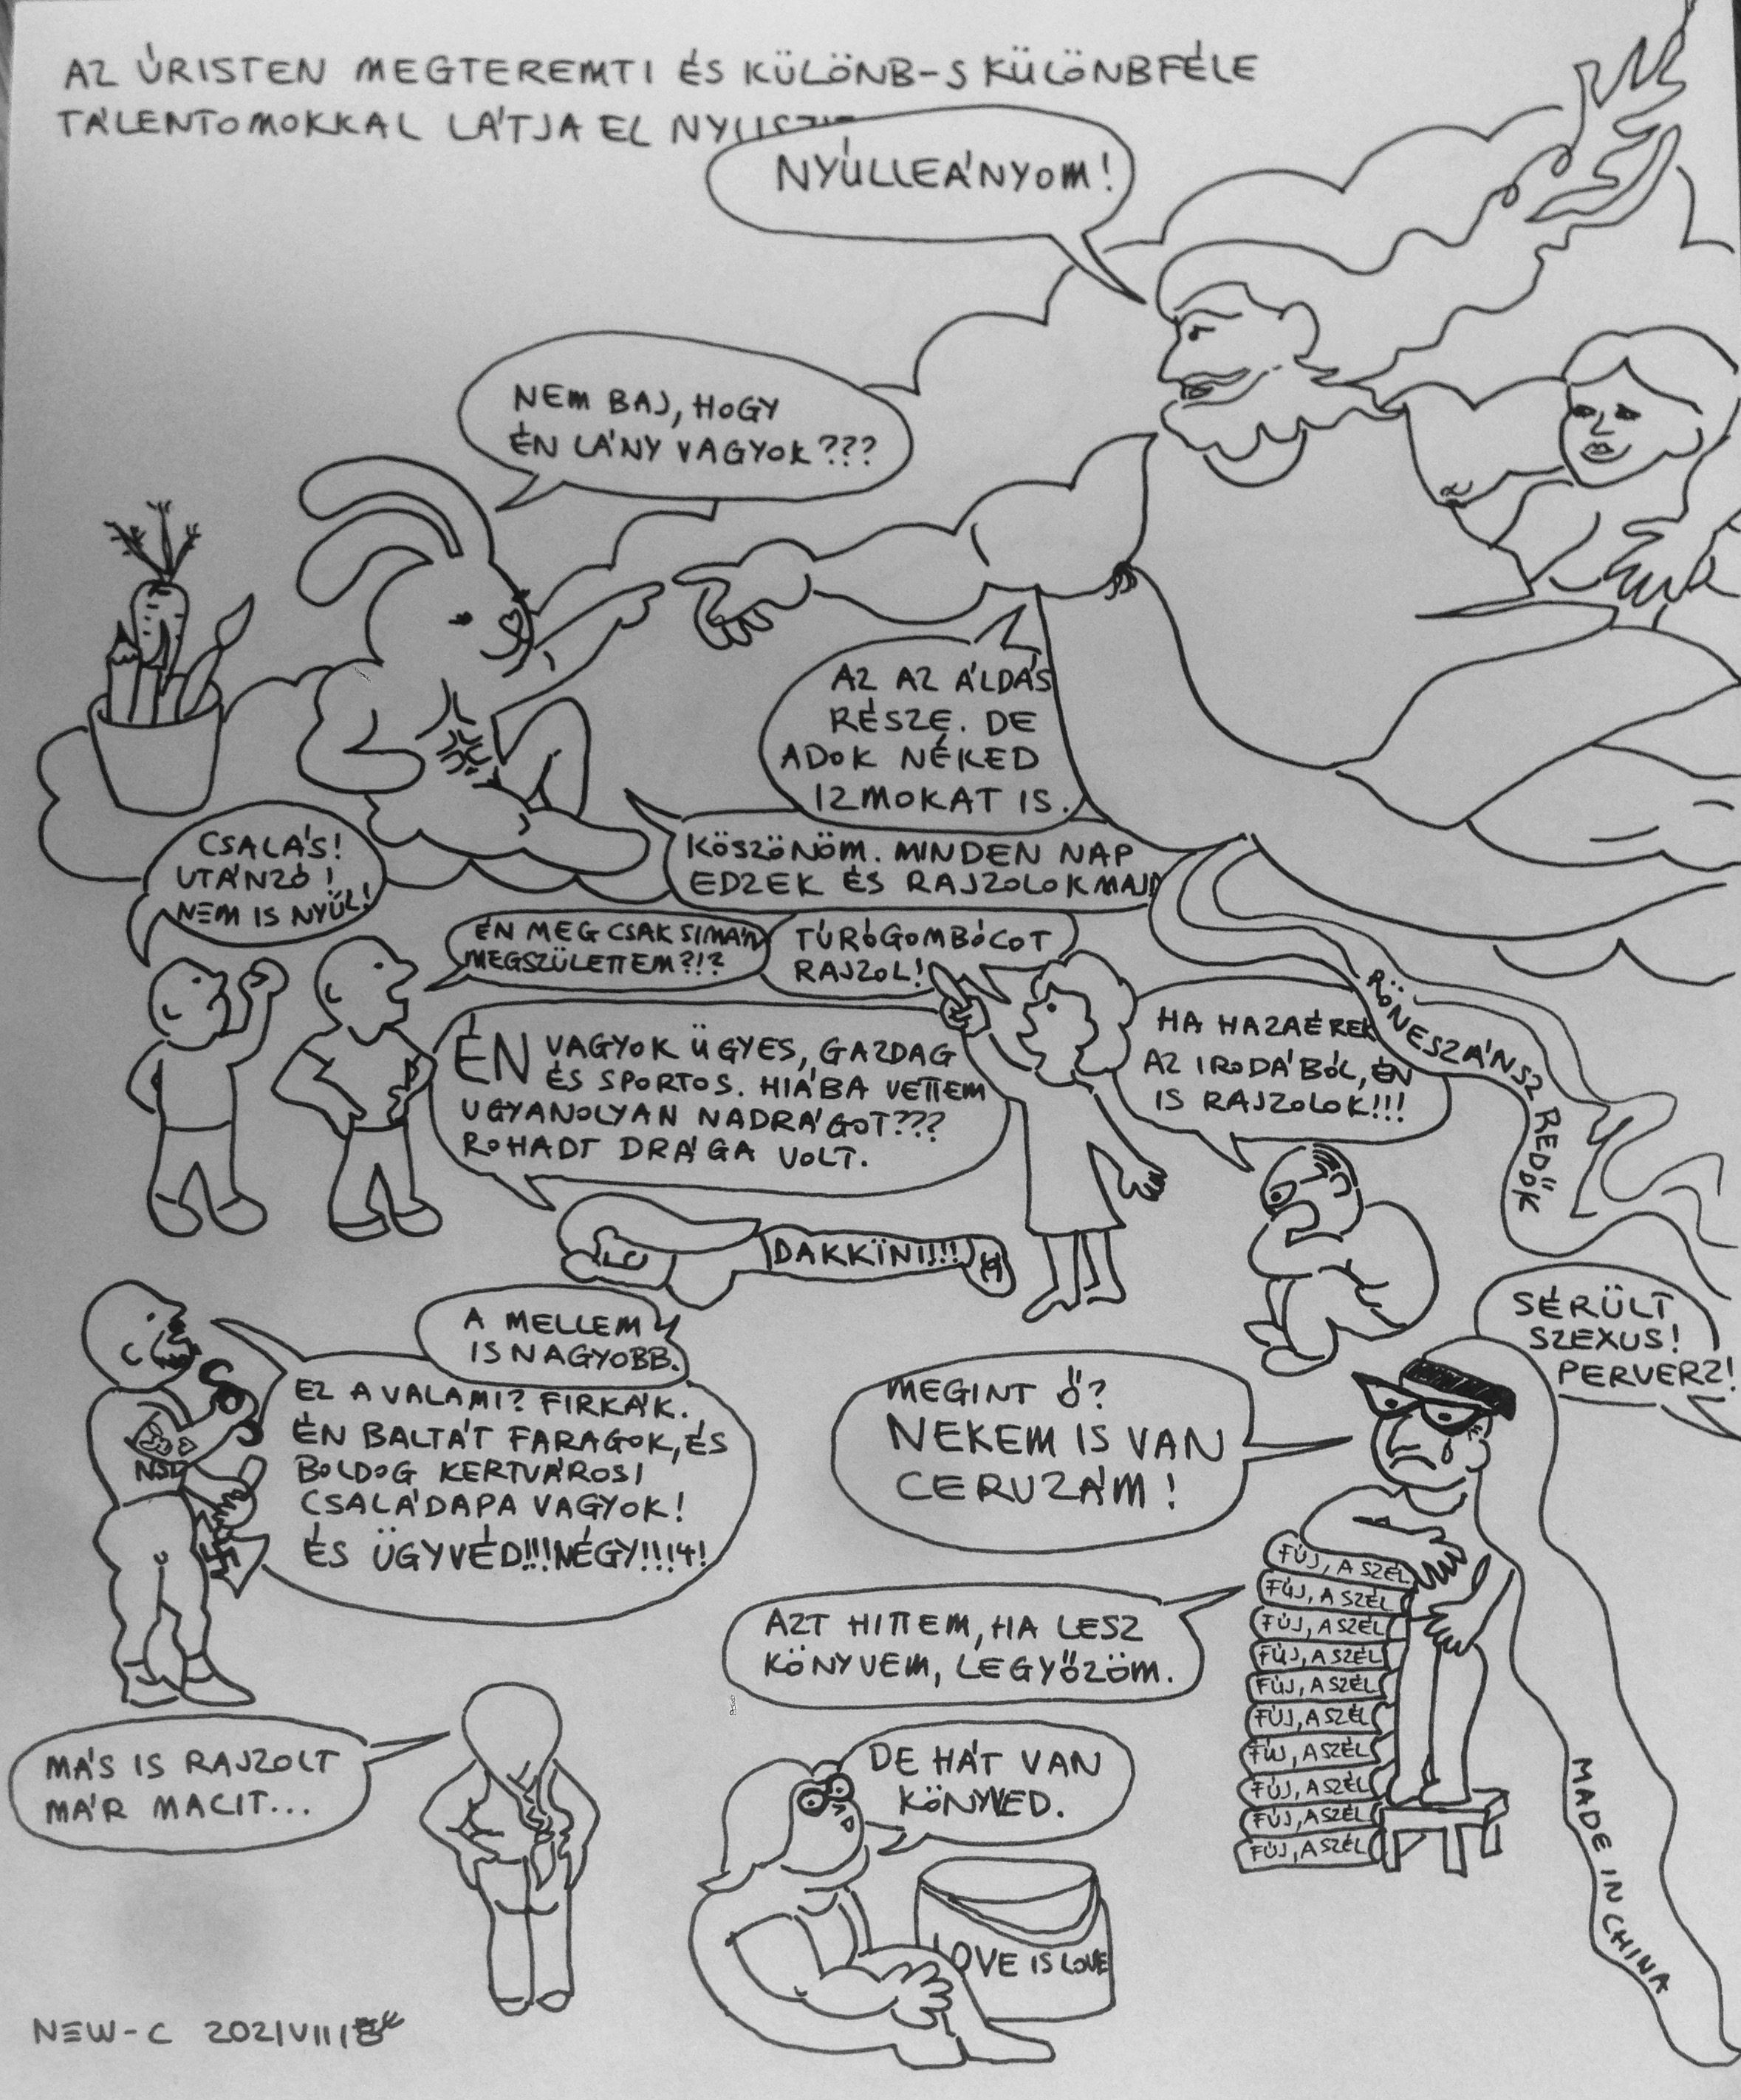 AZ ÚRISTEN MEGTEREMTI ÉS KÜLÖNB-S KÜLÖNBFÉLE
TÁLENTOMOKKAL LÁTJA EL
NYÚLLEÁNYOM!
NEM BAJ, HOGY
ÉN LÁNY VAGYOK???
AZ AZ ÁLDÁS
RÉSZE. DE
ADOK NÉKED
IZMOKAT IS.
KÖSZÖNÖM. MINDEN NAP
EDZEK ÉS RAJZOLOK MAJD
CSALÁS!
UTÁNZÓ!
NEM IS NYÚL!
ÉN MEG CSAK SIMÁN
MEGSZÜLETTEM?!?
TÚRÓGOMBÓCOT
RAJZOL!
ÉN VAGYOK ÜGYES, GAZDAG
ÉS SPORTOS. HIÁBA VETTEM
UGYANOLYAN NADRÁGOT???
ROHADT DRÁGA VOLT.
HA HAZAÉREK
AZ IRODÁBÓL, ÉN
IS RAJZOLOK!!!
RÖNESZÁNSZ REDŐK
DAKKÏNI!!!!
A MELLEM
IS NAGYOBB.
EZ A VALAMI? FIRKÁK.
ÉN BALTÁT FARAGOK, ÉS
BOLDOG KERTVÁROSI
CSALÁDAPA VAGYOK!
ÉS ÜGYVÉD!!!NÉGY!!!4!
SÉRÜLT
SZEXUS!
PERVERZ!
MEGINT Ő?
NEKEM IS VAN
CERUZÁM!
AZT HITTEM, HA LESZ
KÖNYVEM, LEGYŐZÖM.
FÚJ, A SZÉL
FÚJ, A SZÉL
FÚJ, A SZÉL
FÚJ, A SZÉL
FÚJ, A SZÉL
FÚJ, A SZÉL
FÚJ, A SZÉL
FÚJ, A SZÉL
FÚJ, A SZÉL
FÚJ, A SZÉL
MÁS IS RAJZOLT
MÁR MACIT...
DE HÁT VAN
KÖNYVED.
LOVE IS LOVE
MADE IN CHINA
NEW-C 2021VIII